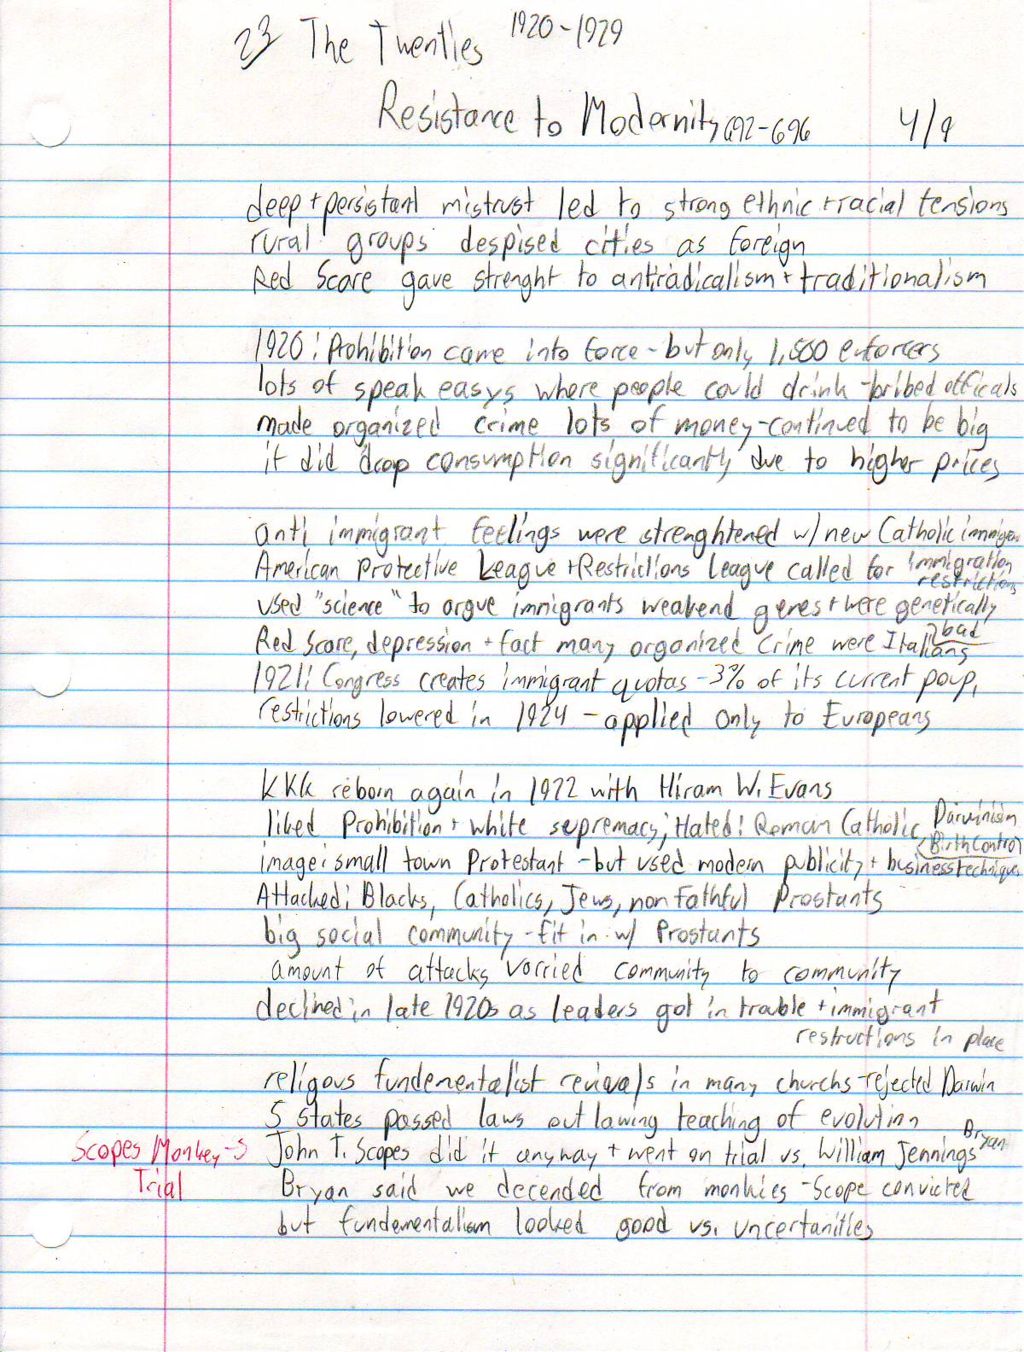 23 The Twenties 1920-1929
Resistance to Modernity 692-696 4/9
deep + persistant mistrust led to strong ethnic + racial tensions
rural groups despised cities as foreign
Red Scare gave strenght to antiradicalism + traditionalism
1920: Prohibition came into force - but only 1,500 enforcers
lots of speak easys where people could drink - bribed officals
made organized crime lots of money - continued to be big
it did drop consumption significantly due to higher prices
anti immigrant feelings were strenghtened w/ new Catholic
American Protective League + Restrictions League called for immigration
restrictions
used "science" to argue immigrants weakend genes + were genetically
bad
Red Scare, depression + fact many organized crime were Italians
1921: Congress creates immigrant quotas - 3% of its current poup.
restrictions lowered in 1924 - applied only to Europeans
KKK reborn again in 1922 with Hiram W. Evans
liked Prohibition + white supremacy; Hated: Roman Catholic, Darwinism
Birth Control
image: small town Protestant - but used modern publicity + business techniques
Attacked: Blacks, Catholics, Jews, non fathful Prostants
big social community - fit in w/ Prostants
amount of attacks varried community to community
declined in late 1920s as leaders got in trouble + immigrant
restructions in place
religous fundementalist revivals in many churchs - rejected Darwin
5 states passed laws outlawing teaching of evolution
Scopes Monkey → John T. Scopes did it anyway + went on trial vs. William Jennings Bryan
Trial Bryan said we decended from monkies - Scope convicted
but fundementalism looked good vs. uncertanities